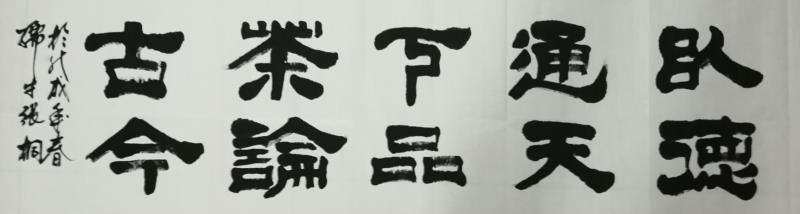 以德
通天
下品
茶論
古今
於戊戌年春
孺牛張桐